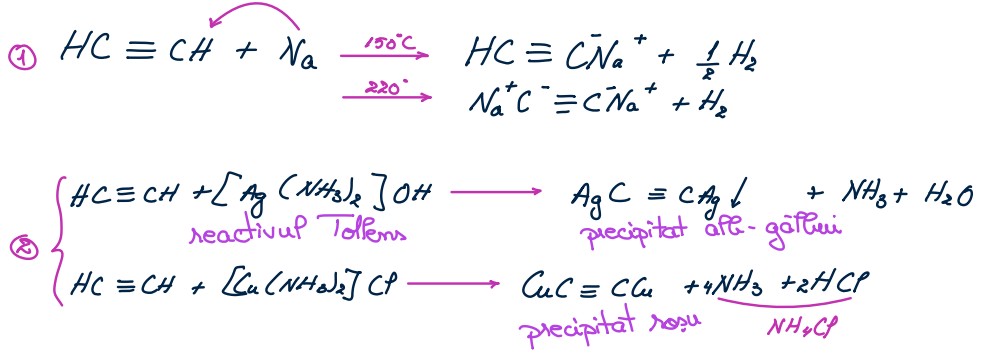 ① HC ≡ CH + Na 150°C→ HC ≡ C⁻Na⁺ + 1/2 H₂
220°→ Na⁺C⁻ ≡ C⁻Na⁺ + H₂
② HC ≡ CH + [Ag (NH₃)₂] OH → AgC ≡ CAg↓ + NH₃ + H₂O
reactivul Tollens precipitat alb-gălbui
HC ≡ CH + [Cu(NH₃)₂] Cl → CuC ≡ CCu + 4NH₃ + 2HCl
precipitat roșu NH₄Cl